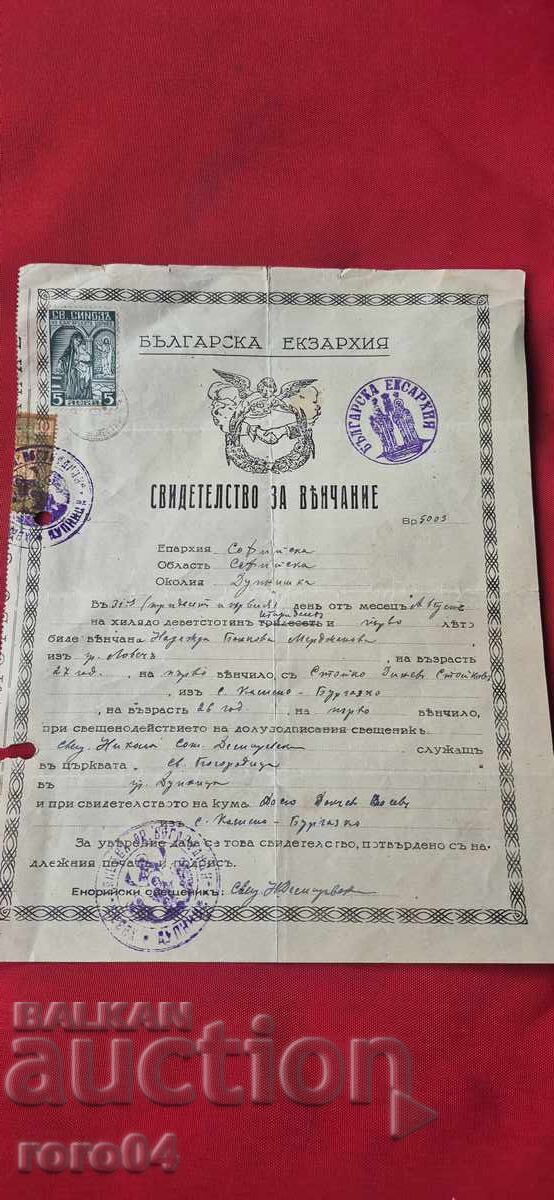 СВ. СИНОДЪ
5 ЛЕВА 5
БЪЛГАРСКА ЕКЗАРХИЯ
БЪЛГАРСКА ЕКСАРХИЯ
СВИДЕТЕЛСТВО ЗА ВѢНЧАНИЕ
№ 5003
Епархия Софийска
Область Софийска
Околия Дупнишка
Въ 31й (тридесет и първия) день отъ месецъ Августъ
четиридесет
на хилядо деветстотинъ тридесеть и първо лѣто
биде вѣнчана Надежда Мерджанова
изъ гр. Ловечъ, на възрасть
27 год., на първо вѣнчило, съ Стойко Стойковъ
, изъ с. Камено - Бургазко
, на възрасть 26 год., на първо вѣнчило,
при священодействието на долуподписания священикъ
Свещ. Никола служащъ
въ църквата Св. Богородица
въ гр. Дупница
и при свидетелството на кума
изъ с. Камено - Бургазко
За уверение даде се това свидетелство, потвърдено съ надлежния печатъ и подписъ.
Енорийски свещеникъ: Свещ.
BALKAN
auction
roro04